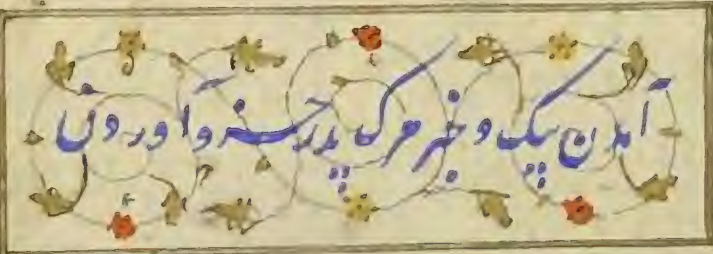 آمدن پیک و خبر مرگ پدر خسرو آوردن